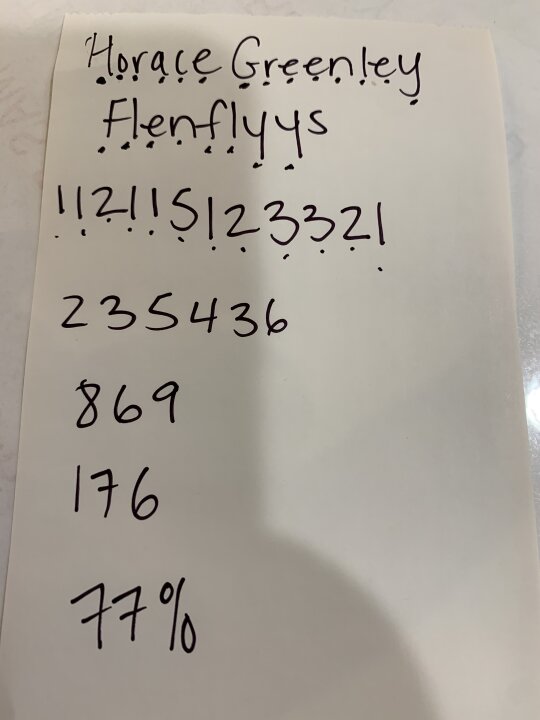 Horace Greenley
Flenflyys
112115123321
235436
869
176
77%